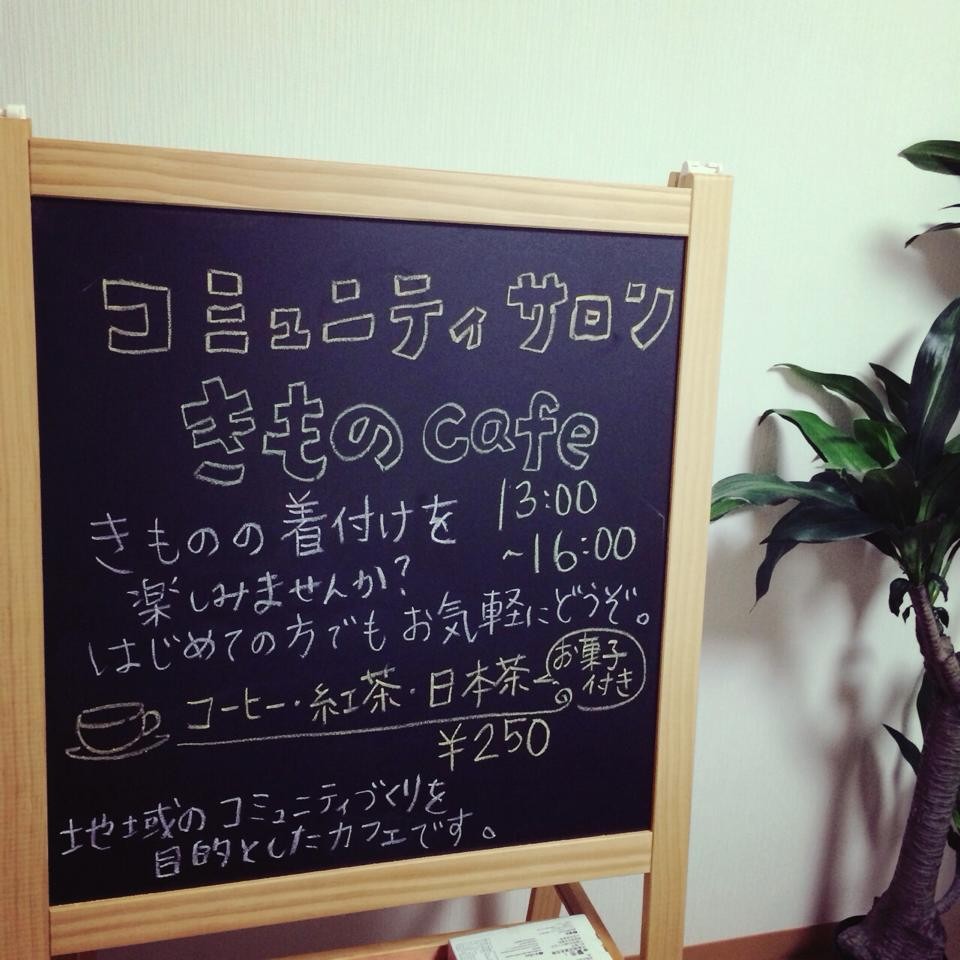 コミュニティサロン
きものcafe
13:00
~16:00
きものの着付けを
楽しみませんか?
はじめての方でもお気軽にどうぞ。
コーヒー・紅茶・日本茶
お菓子
付き
¥250
地域のコミュニティづくりを
目的としたカフェです。